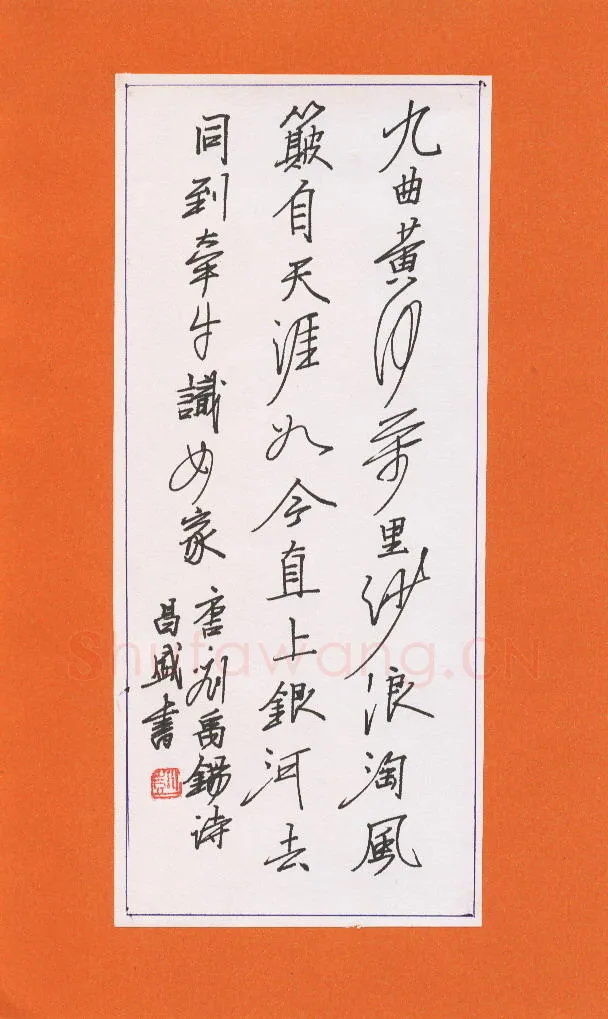 九曲黄河萬里紗浪淘風
簸自天涯如今直上銀河去
同到牵牛識女家
唐刘禹錫诗
昌盛書
Shufawang.CN